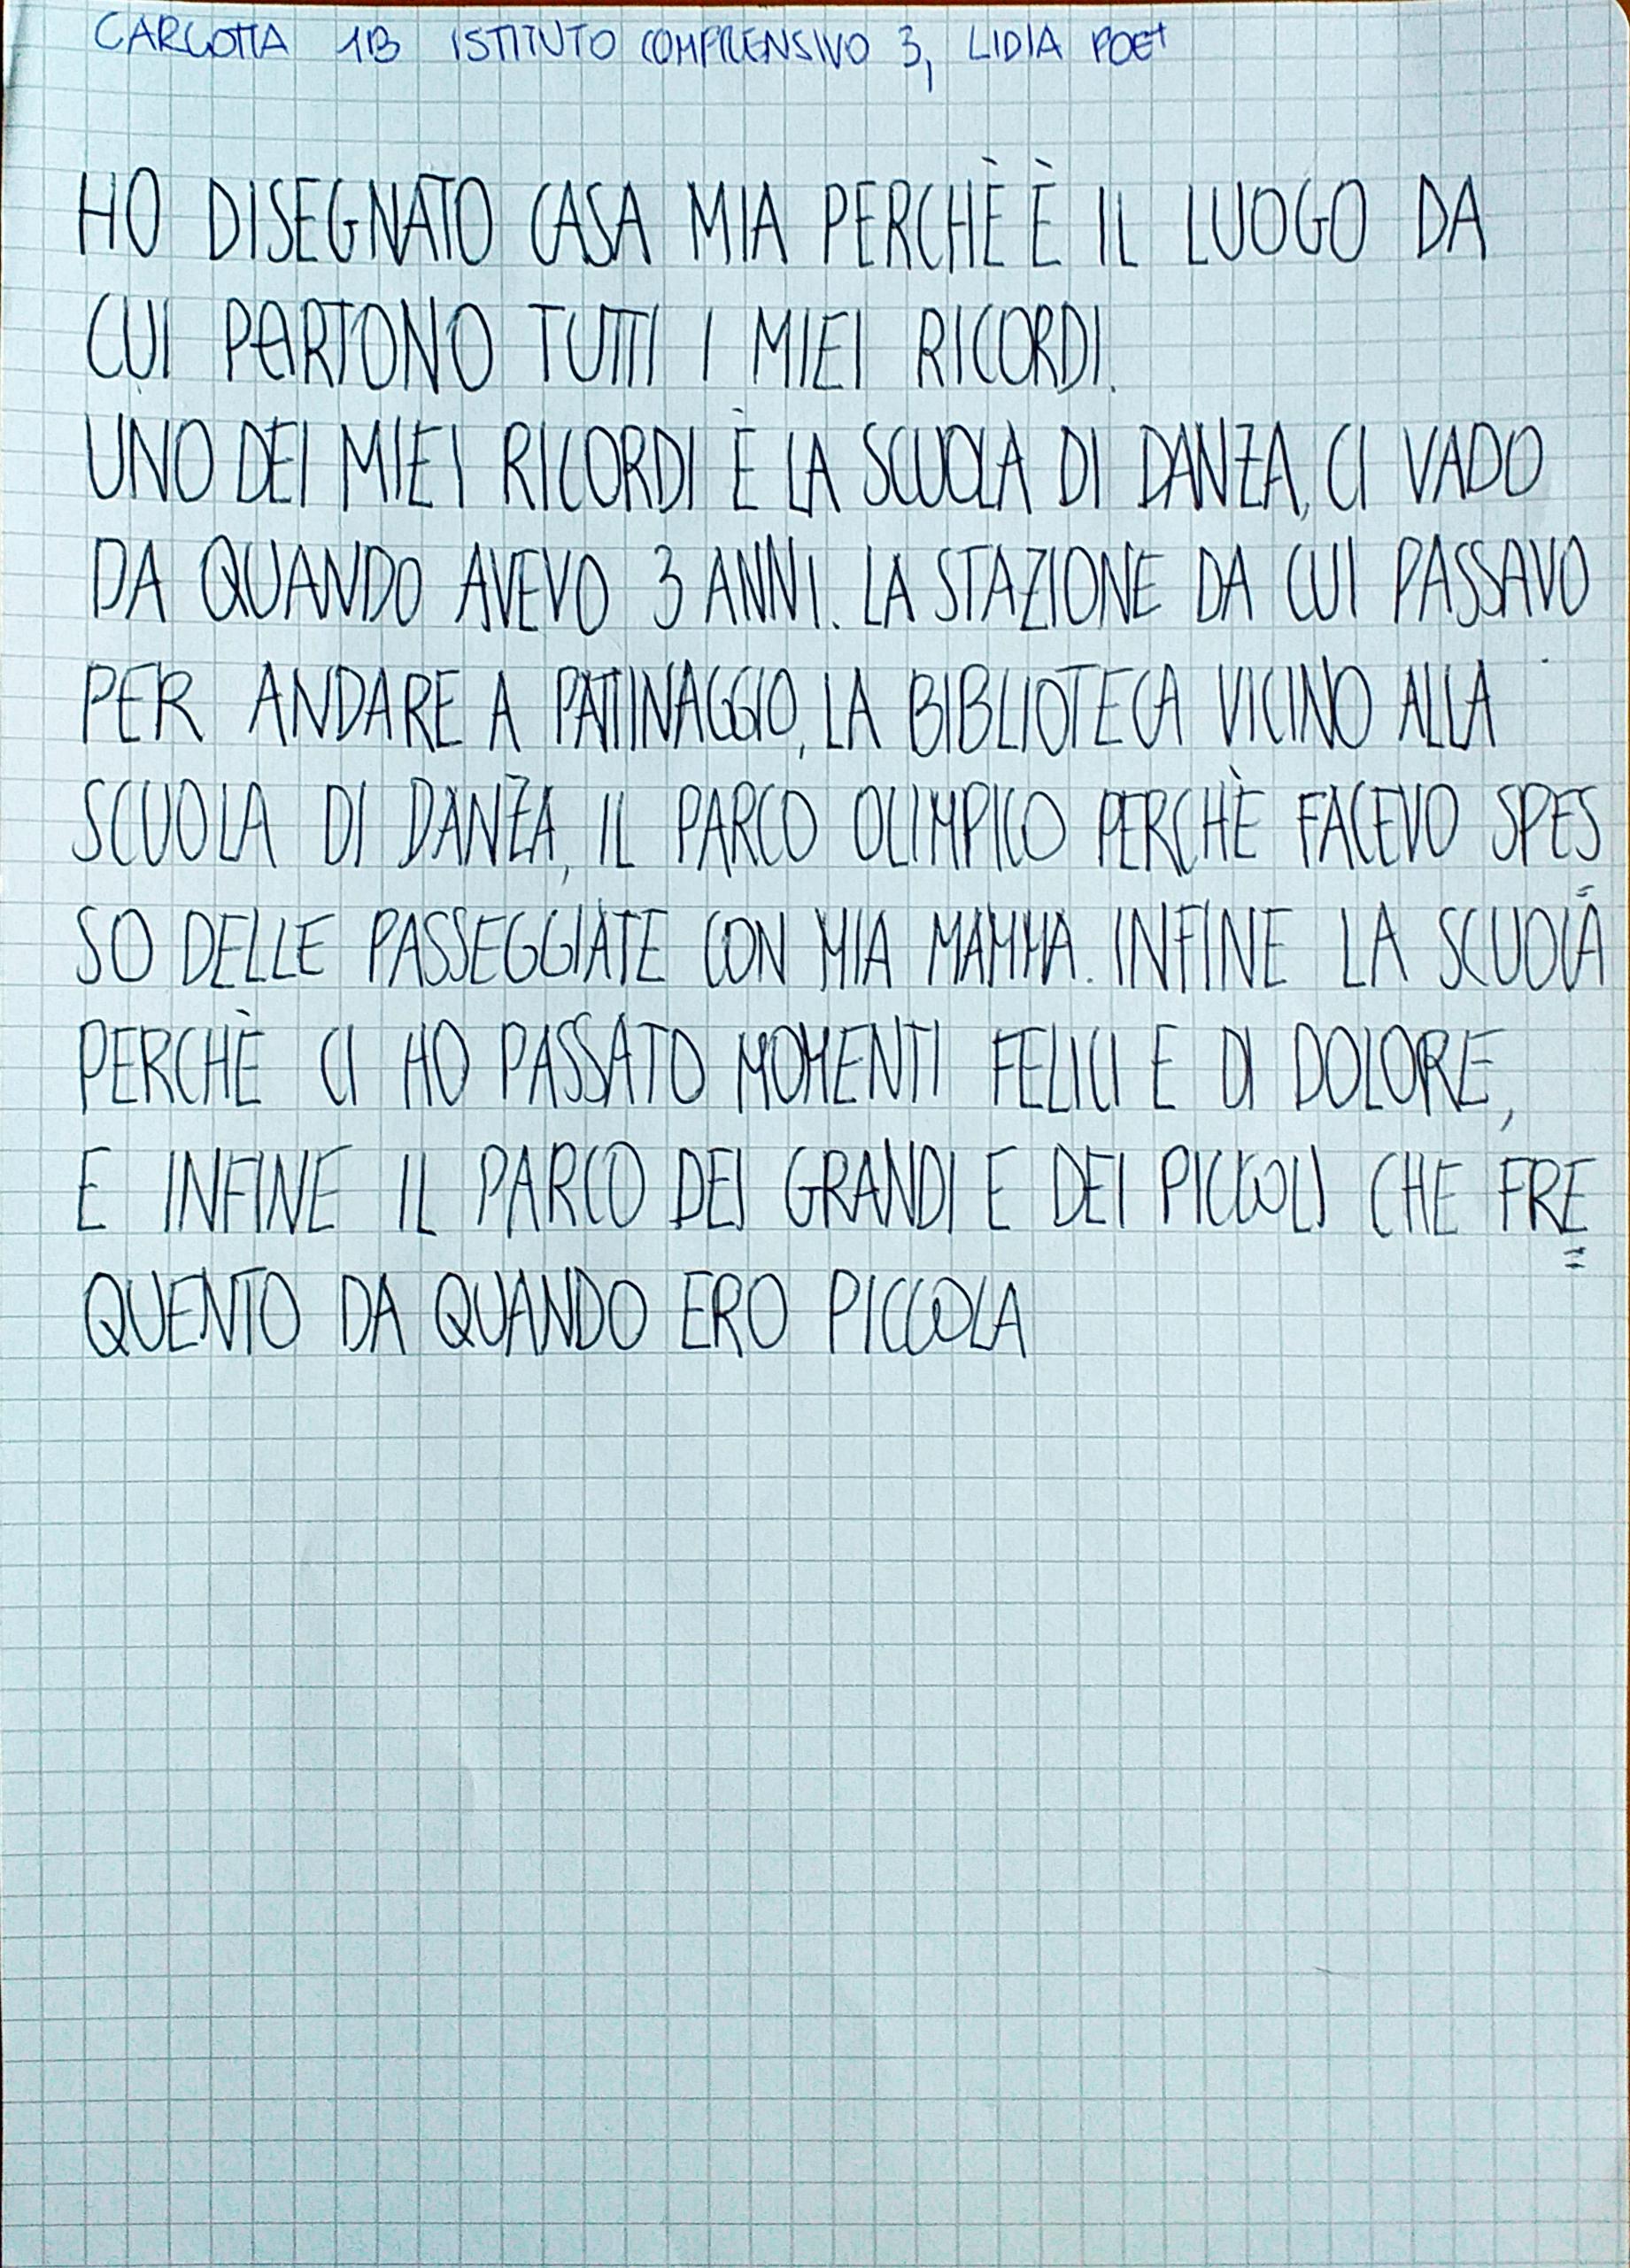 CARLOTTA 1B ISTITUTO COMPRENSIVO 3, LIDIA POET
HO DISEGNATO CASA MIA PERCHÈ È IL LUOGO DA
CUI PARTONO TUTTI I MIEI RICORDI.
UNO DEI MIEI RICORDI È LA SCUOLA DI DANZA, CI VADO
DA QUANDO AVEVO 3 ANNI. LA STAZIONE DA CUI PASSAVO
PER ANDARE A PATTINAGGIO, LA BIBLIOTECA VICINO ALLA
SCUOLA DI DANZA, IL PARCO OLIMPICO PERCHÈ FACEVO SPES
SO DELLE PASSEGGIATE CON MIA MAMMA. INFINE LA SCUOLA
PERCHÈ CI HO PASSATO MOMENTI FELICI E DI DOLORE,
E INFINE IL PARCO DEI GRANDI E DEI PICCOLI CHE FRE=
QUENTO DA QUANDO ERO PICCOLA